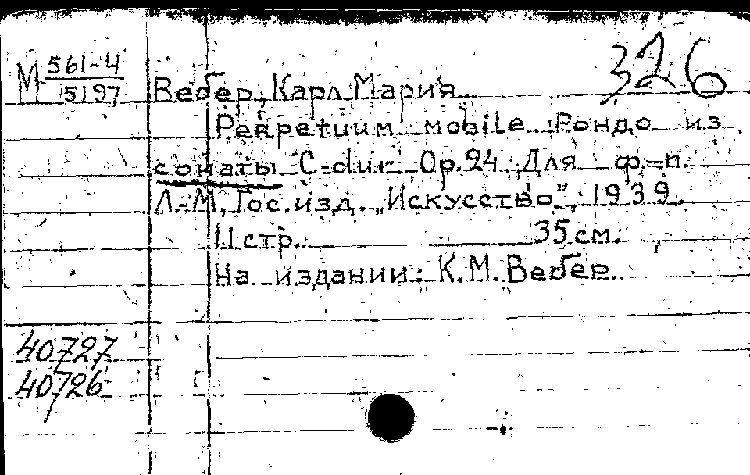 326
М 561-4
5197
Вебер, Карл Мария
Perpetuum mobile Рондо из
сонаты C-dur Op.24 Для ф.-п.
Л.-М., Гос.изд. „Искусство", 1939.
11 стр. 35 см.
На издании: К.М.Вебер.
40727
40726